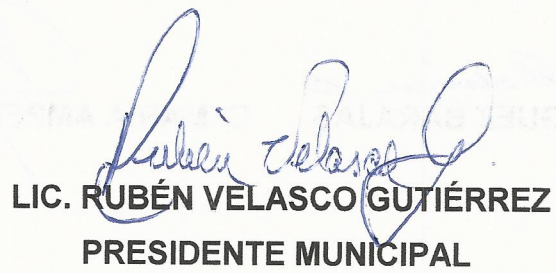 Rubén Velasco G
LIC. RUBÉN VELASCO GUTIÉRREZ
PRESIDENTE MUNICIPAL